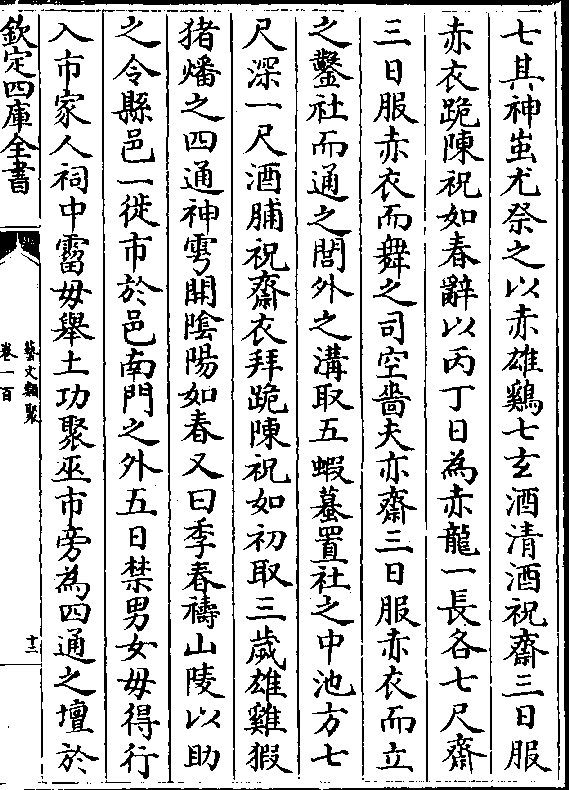 七其神蚩尤祭之以赤雄鷄七玄酒清酒祝齋三日服
赤衣跪陳祝如春辭以丙丁日為赤龍一長各七尺齋
三日服赤衣而舞之司空嗇夫亦齋三日服赤衣而立
之鑿社而通之閭外之溝取五蝦蟇置社之中池方七
尺深一尺酒脯祝齋衣拜跪陳祝如初取三歲雄雞猳
猪燔之四通神雩開陰陽如春又曰季春禱山陵以助
之令縣邑一徙市於邑南門之外五日禁男女毋得行
入市家人祠中霤毋舉土功聚巫市旁為四通之壇於
欽定四庫全書
藝文類聚
卷一百
十三